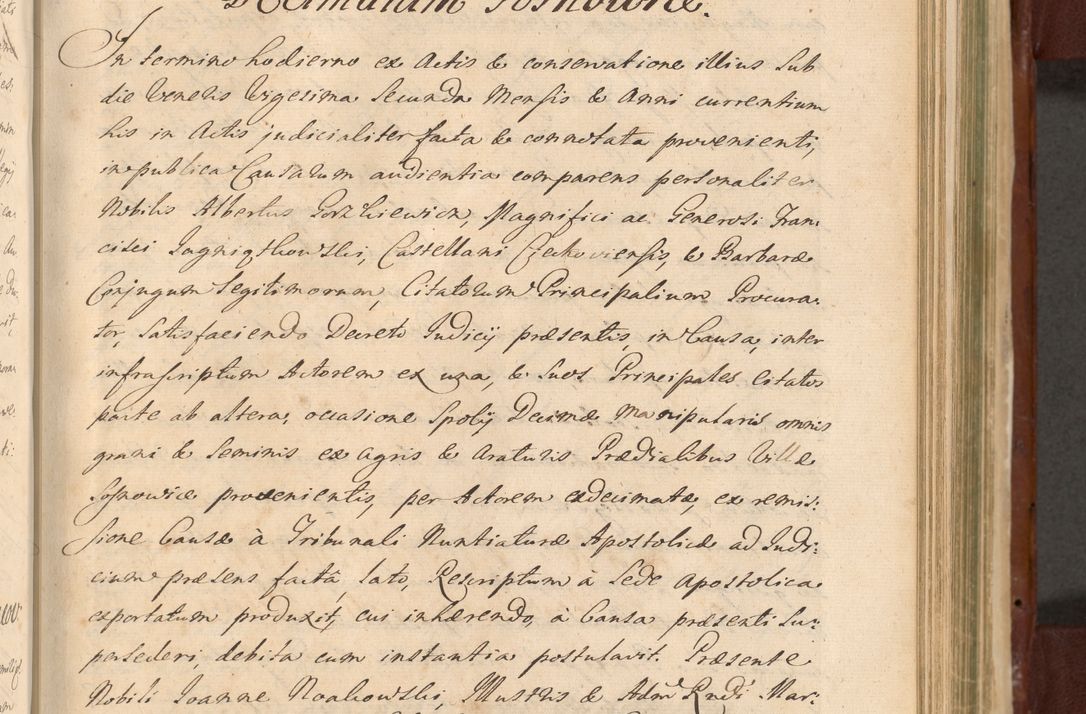 In termino hodierno ex Actis & conservatione illius Sub
die Veneris Vigesima Secunda Mensis & Anni currentium
his in Actis judicialiter facta & connotata provenienti,
in publica Causarum audientia comparens personaliter
Nobilis Albertus Gorzkiewicz, Magnifici ac Generosi Fran:
cisci Jagniątkowski, Castellani Czechoviensis, & Barbaræ
Conjugum Legitimorum, Citatorum Principalium Procura:
tor, Satisfaciendo Decreto Judicij præsentis, in Causa, inter
infrascriptum Actorem ex una, & Suos Principales Citatos
parte ab altera, occasione Spolij Decimæ Manipularis omnis
grani & Seminis ex Agris & Araturis Prædialibus Villæ
Sosnowice provenientis, per Actorem exdecimatæ, ex remis:
sione Causæ à Tribunali Nuntiaturæ Apostolicæ ad Judi:
cium præsens factâ, lato, Rescriptum à Sede Apostolica
exportatum produxit, cui inhærendo, à Causa præsenti Su:
persederi, debita cum instantia postulavit. Præsente
Nobili Joanne Noakowski, Illustris & Admˢ Rndi Mar: